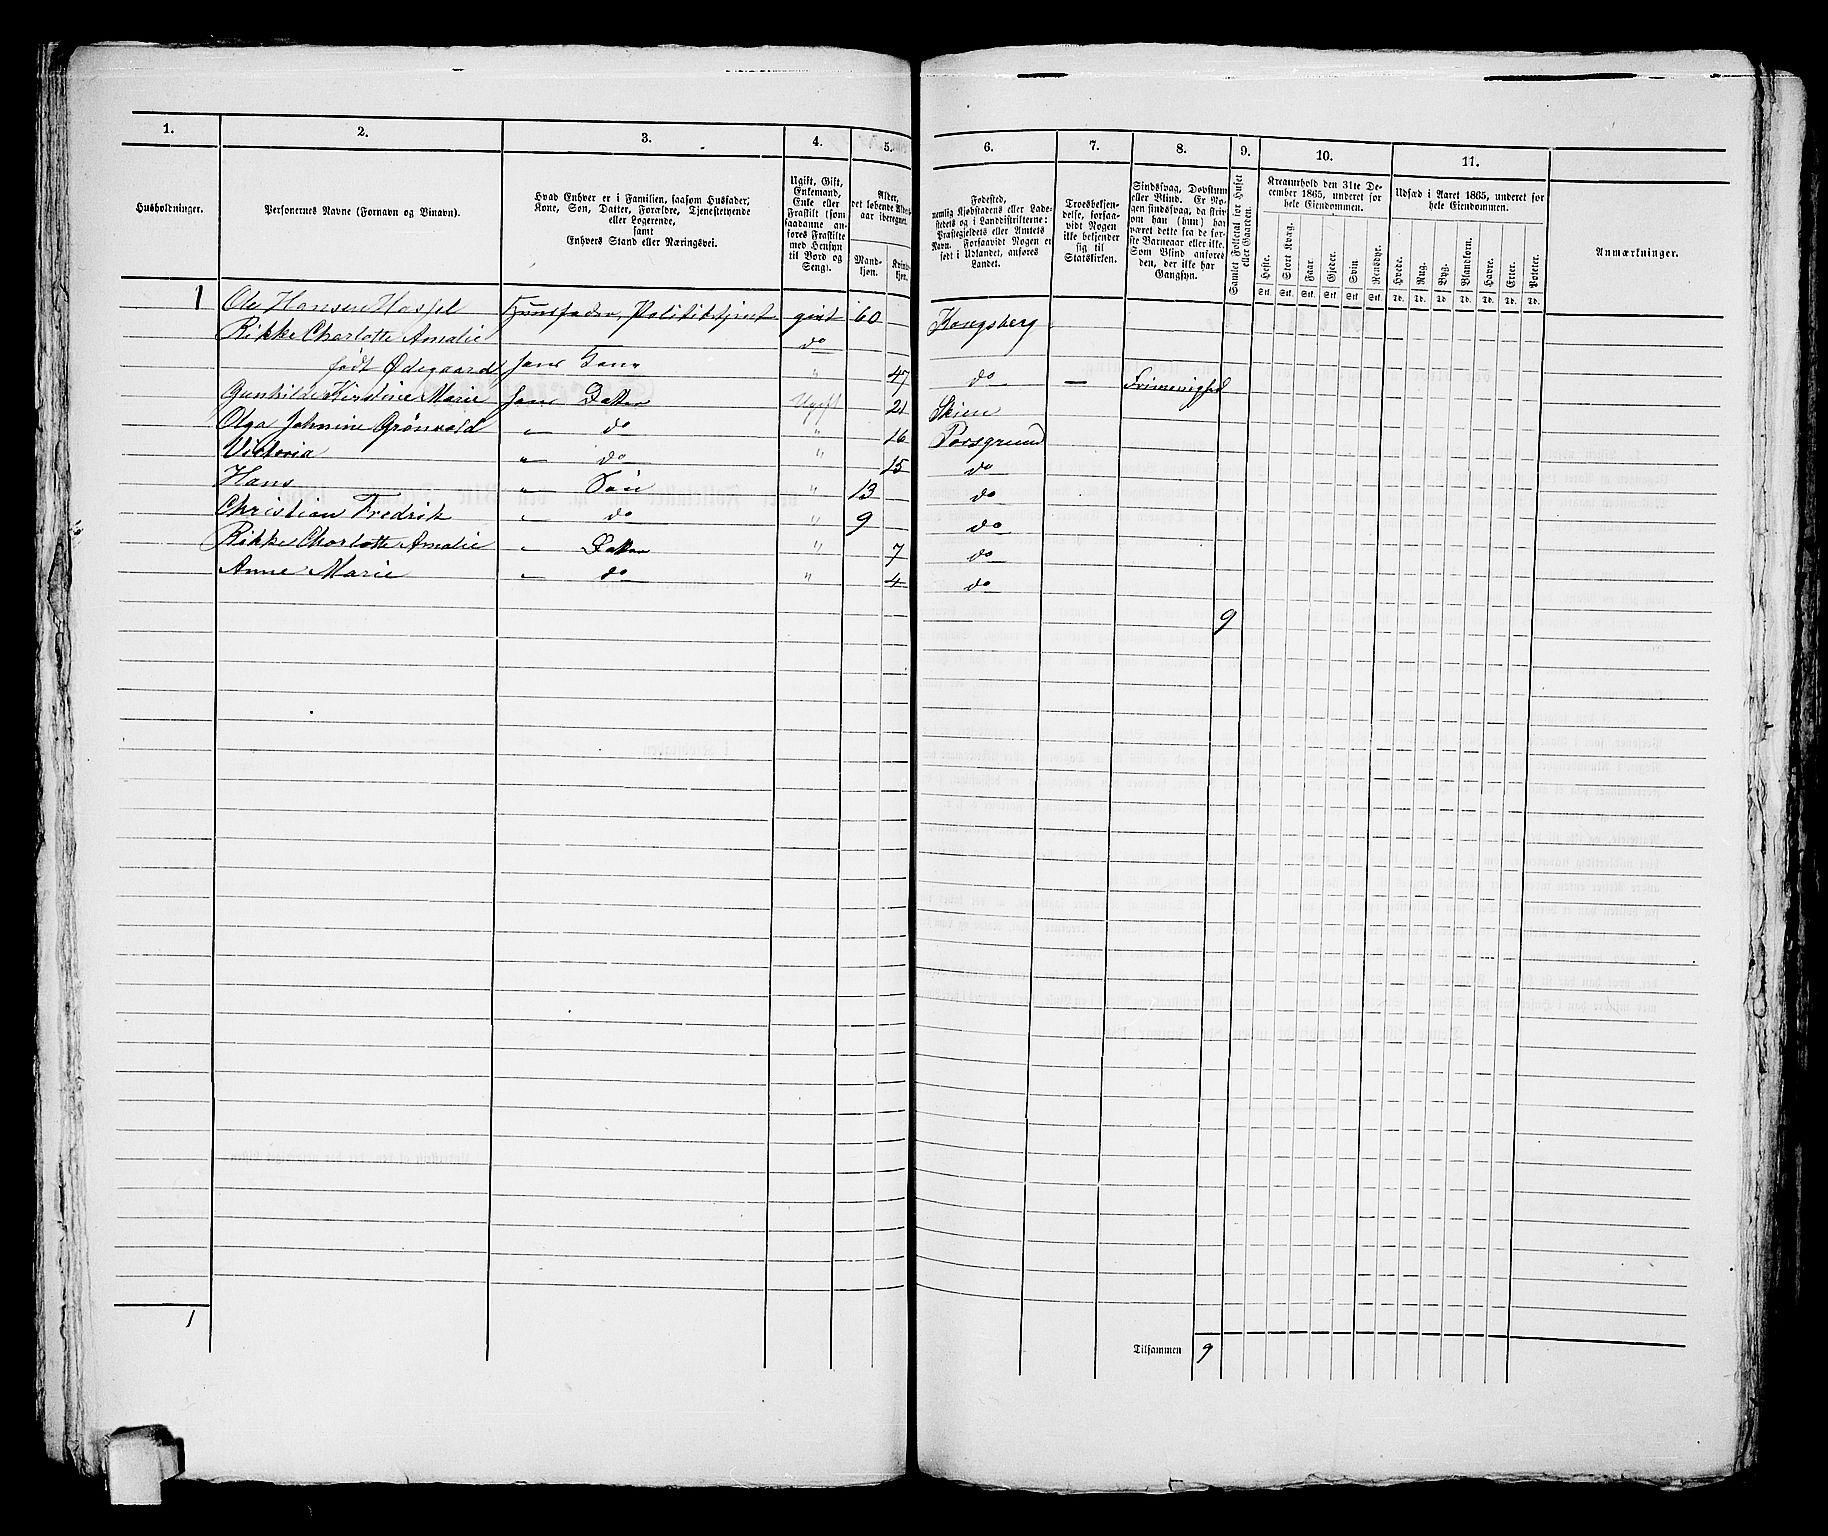 1. 2. 3. 4. 5. 6. 7. 8. 9. 10. 11.
Husholdninger.
Personernes Navne (Fornavn og Binavn).
Hvad Enhver er i Familien, saasom Husfader,
Kone, Søn, Datter, Forældre, Tjenestetyende
eller Logerende,
samt
Enhvers Stand eller Næringsvei.
Ugift, Gift,
Enkemand,
Enke eller
Fraskilt (som
saadanne an-
føres Fraskilte
med Hensyn
til Bord og
Seng).
Alder,
det løbende Alders-
aar iberegnet.
Mand-
kjøn.
Kvinde-
kjøn.
Fødested,
nemlig Kjøbstadens eller Lade-
stedets og i Landdistrikterne:
Præstegjeldets eller Amtets
Navn. Forsaavidt Nogen er
født i Udlandet, anføres
Landet.
Troesbekjen-
delse, forsaa-
vidt Nogen
ikke bekjender
sig til
Statskirken.
Sindssvag, Døvstum
eller Blind. Er No-
gen sindssvag, da skriv
om han (hun) har
været dette fra de før-
ste Barneaar eller ikke.
Som Blind anføres
den, der ikke har
Gangsyn.
Samlet Folketal for Huset
eller Gaarden.
Kreaturhold den 31te De-
cember 1865, underet for
hele Eiendommen.
Heste. Stort Kvæg. Faar. Gjeder. Svin. Rensdyr.
Stk. Stk. Stk. Stk. Stk. Stk.
Udsæd i Aaret 1865, underet for
hele Eiendommen.
Hvede. Rug. Byg. Blandkorn. Havre. Erter. Poteter.
Td. Td. Td. Td. Td. Td. Td.
Anmærkninger.
1 Ole Hansen Hasfel Huusfader, Politibetjent givt 60 Kongsberg
Rikke Charlotte Amalie do
født Ødegaard hans Kone " 47 do —
Gunhilde Kirstine Marie hans Datter Ugift 21 Skien
Olga Johnine Grønvold " do " 16 Porsgrund
Viktoria " do " 15 do
Hans " Søn " 13 do
Christian Fredrik " do " 9 do
Rikke Charlotte Amalie " Datter " 7 do
Anne Marie " do " 4 do
9
1
Tilsammen 9